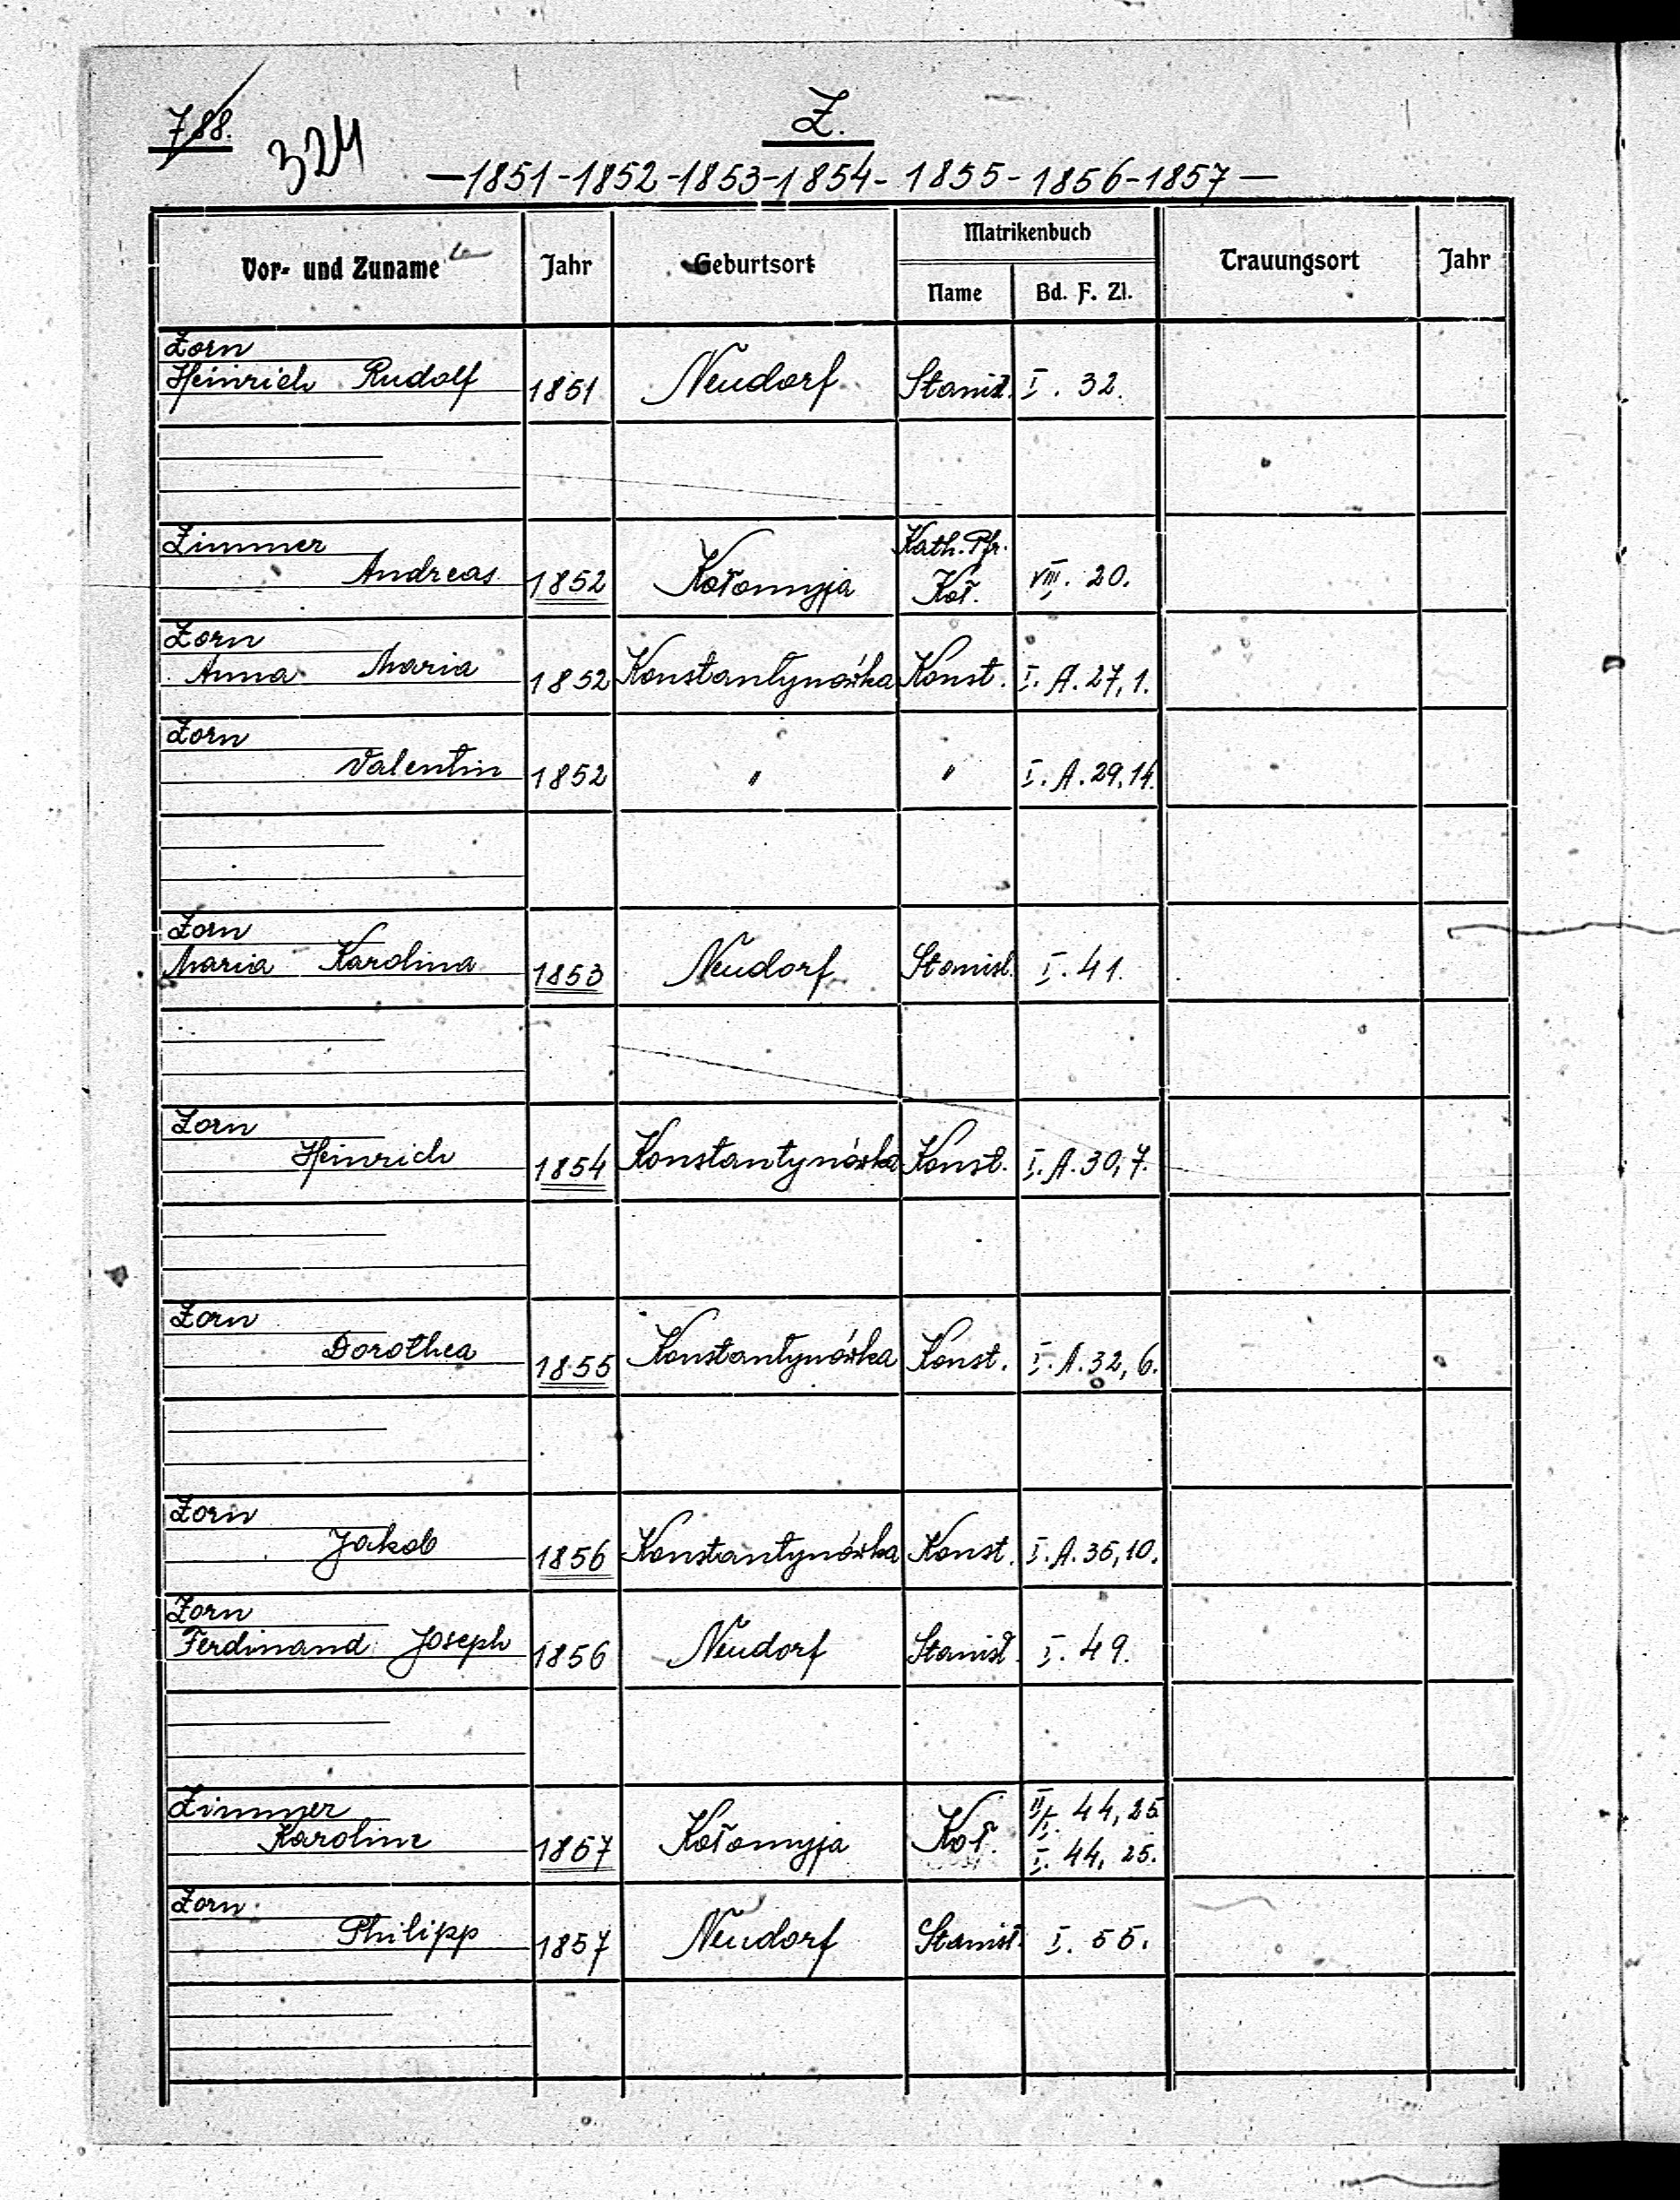 788.
324
Z.
—1851-1852-1853-1854-1855-1856-1857—
Vor- und Zuname Jahr Geburtsort Matrikenbuch Trauungsort Jahr
Name Bd. F. Zl.
Zorn
Heinrich Rudolf 1851 Neudorf Stanisł. I. 32.
Zimmer Kath. Pfr.
Andreas 1852 Kołomyja Koł. VIII. 20.
Zorn
Anna Maria 1852 Konstantynówka Konst. I. A. 27, 1.
Zorn
Valentin 1852 " " I. A. 29, 14.
Zorn
Maria Karolina 1853 Neudorf Stanisł. I. 41.
Zorn
Heinrich 1854 Konstantynówka Konst. I. A. 30, 7.
Zorn
Dorothea 1855 Konstantynówka Konst. I. A. 32, 6.
Zorn
Jakob 1856 Konstantynówka Konst. I. A. 35, 10.
Zorn
Ferdinand Joseph 1856 Neudorf Stanisł. I. 49.
Zimmer II/I. 44, 25
Karoline 1857 Kołomyja Koł. I. 44, 25.
Zorn
Philipp 1857 Neudorf Stanisł. I. 55.